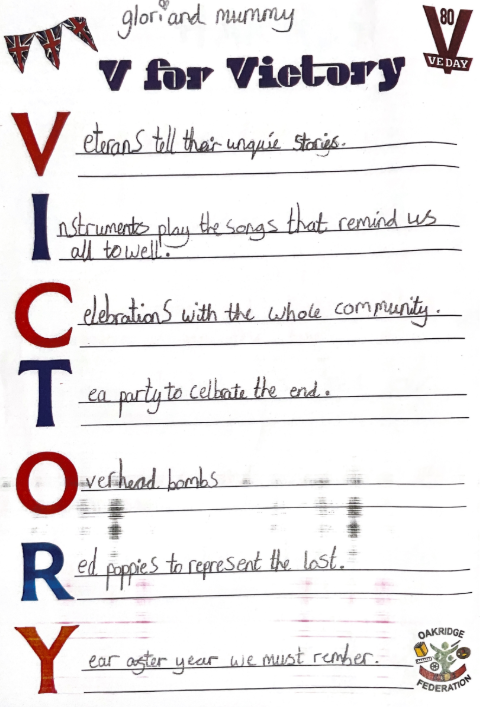 glori and mummy
80
VE DAY
V for Victory
Veterans tell their unquie stories.
Instruments play the songs that remind us
all to well.
Celebrations with the whole community.
Tea party to celbrate the end.
Overhead bombs
Red poppies to represent the lost.
Year aster year we must rember.
OAKRIDGE
FEDERATION